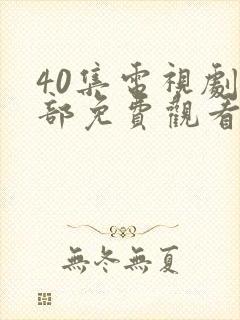 40集電視劇
部免費觀看
無冬無夏